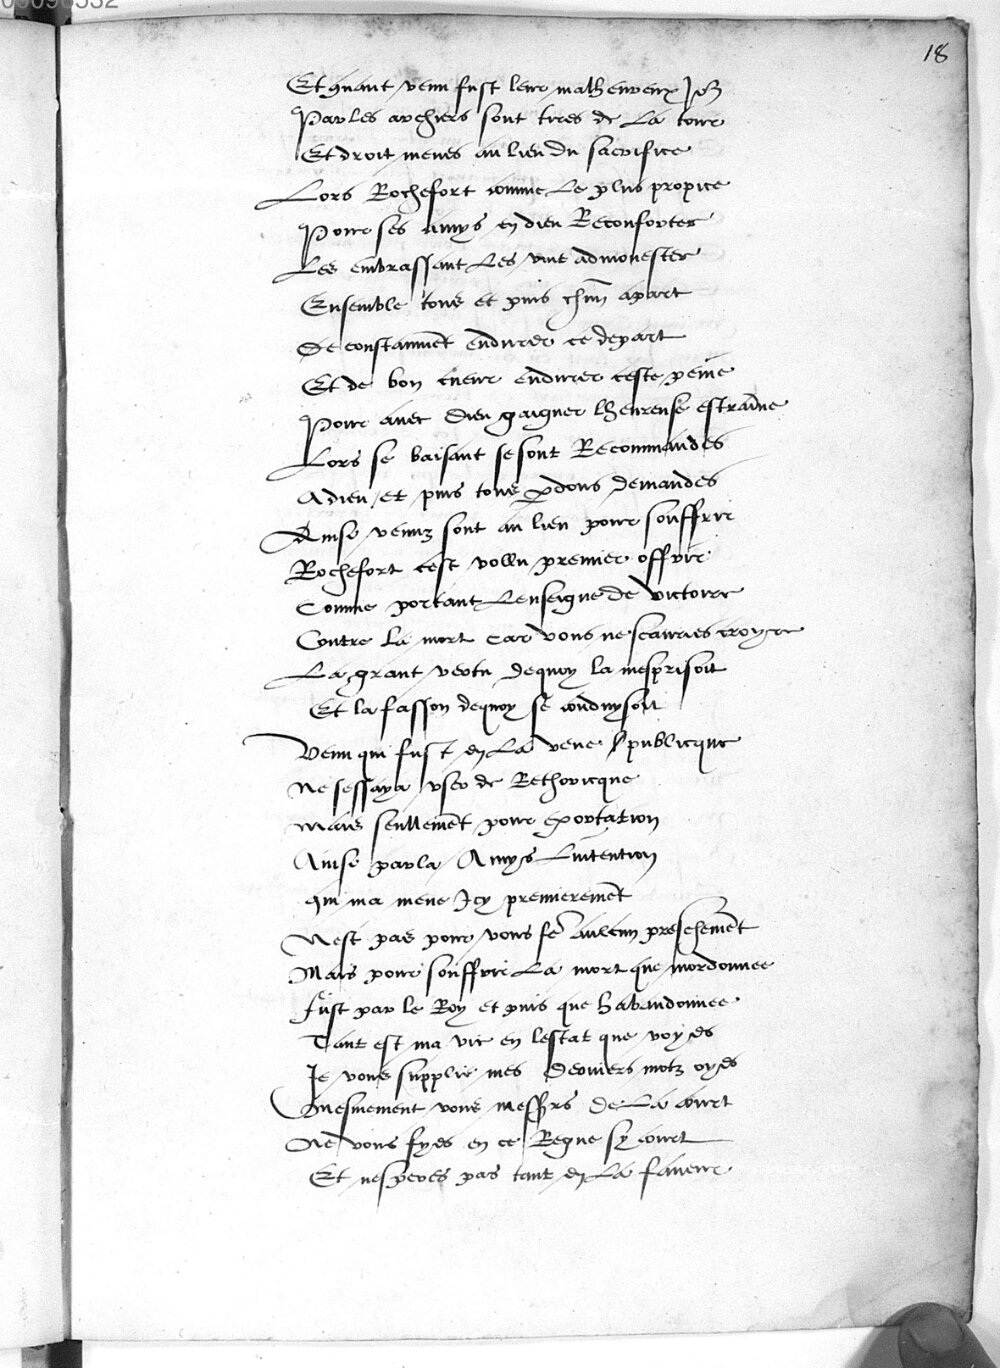 18
Et quant venu fust leur malheureux Jor
Par les archiers sont tires de la tour
Et droit menes au lieu du sacrifice
Lors Rochefort comme le plus propice
Pour ses amys en dieu Reconforter
Les embrassant les vint admonester
Ensemble tous et puis chun apart
De constamment endurer ce depart
Et de bon cueur endurer ceste peine
Pour avec dieu gaigner lheureuse estraine
Lors se baisant se sont Recommandes
A dieu et puis tous pdons demandes
Ainse venuz sont au lieu pour souffrir
Rochefort cest vollu premier offrir
Comme portant lenseigne de victoire
Contre la mort car vous ne scauries croyre
La grant vertu dequoy la mesprisoit
Et la fasson dequoy se conduysoit
Venu qui fust en la veue publicque
Ne sessaya user de Rethoricque
Mais seullement pour exortation
Ainse parla Amys lintention
qui ma mene Icy premierement
Nest pas pour vous fe aulcun preschement
Mais pour souffrir la mort que mordonnee
fust par le Roy et puis que habandonnee
Tant est ma vie en lestat que voyes
Je vous supplie mes derniers motz oyes
Mesmement vous messrs de la court
Ne vous fyes en ce Regne sy court
Et nesperes pas tant en la faveur